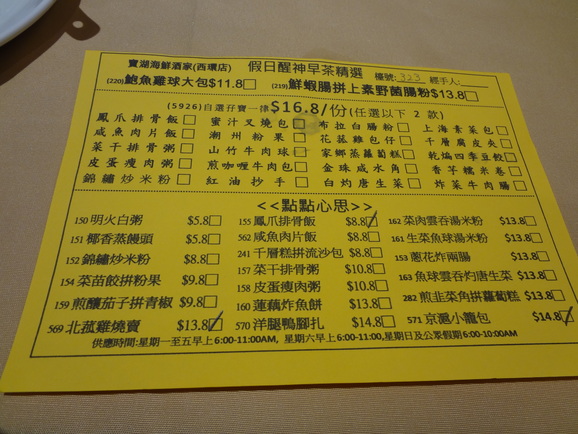 寶湖海鮮酒家(西環店) 假日醒神早茶精選 檯號:323 經手人:
(220)鮑魚雞球大包$11.8 (219)鮮蝦腸拼上素野菌腸粉$13.8
(5926)自選孖寶一律$16.8/份(任選以下 2 款)
鳳爪排骨飯 蜜汁叉燒包 布拉白腸粉 上海素菜包
咸魚肉片飯 潮州粉果 花菇雞包仔 千層腐皮夾
菜干排骨粥 山竹牛肉球 家鄉蒸蘿蔔糕 乾煸四季豆餃
皮蛋瘦肉粥 煎咖喱牛肉包 金珠咸水角 香芋糯米卷
錦繡炒米粉 紅油抄手 白灼唐生菜 炸菜牛肉腸
<<點點心思>>
150 明火白粥 $5.8 155 鳳爪排骨飯 $8.8 162 菜肉雲吞湯米粉 $13.8
151 椰香蒸饅頭 $5.8 562 咸魚肉片飯 $8.8 161 生菜魚球湯米粉 $13.8
152 錦繡炒米粉 $8.8 241 千層糕拼流沙包 $8.8 153 蔥花炸兩腸 $13.8
154 菜苗餃拼粉果 $9.8 157 菜干排骨粥 $10.8 163 魚球雲吞灼唐生菜 $13.8
159 煎釀茄子拼青椒 $9.8 158 皮蛋瘦肉粥 $10.8 282 煎韭菜角拼蘿蔔糕 $13.8
569 北菇雞燒賣 $13.8 160 蓮藕炸魚餅 $13.8 571 京滬小籠包 $14.8
570 洋腿鴨腳扎 $14.8
供應時間:星期一至五早上6:00-11:00AM, 星期六早上6:00-11:00,星期日及公眾假期6:00-10:00AM